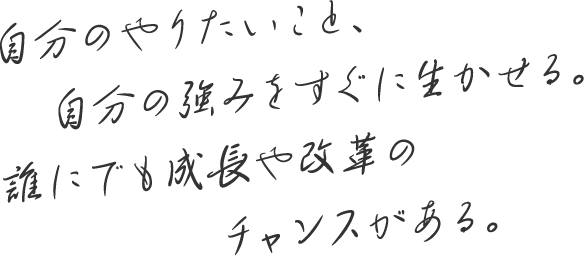 自分のやりたいこと、
自分の強みをすぐに生かせる。
誰にでも成長や改革の
チャンスがある。